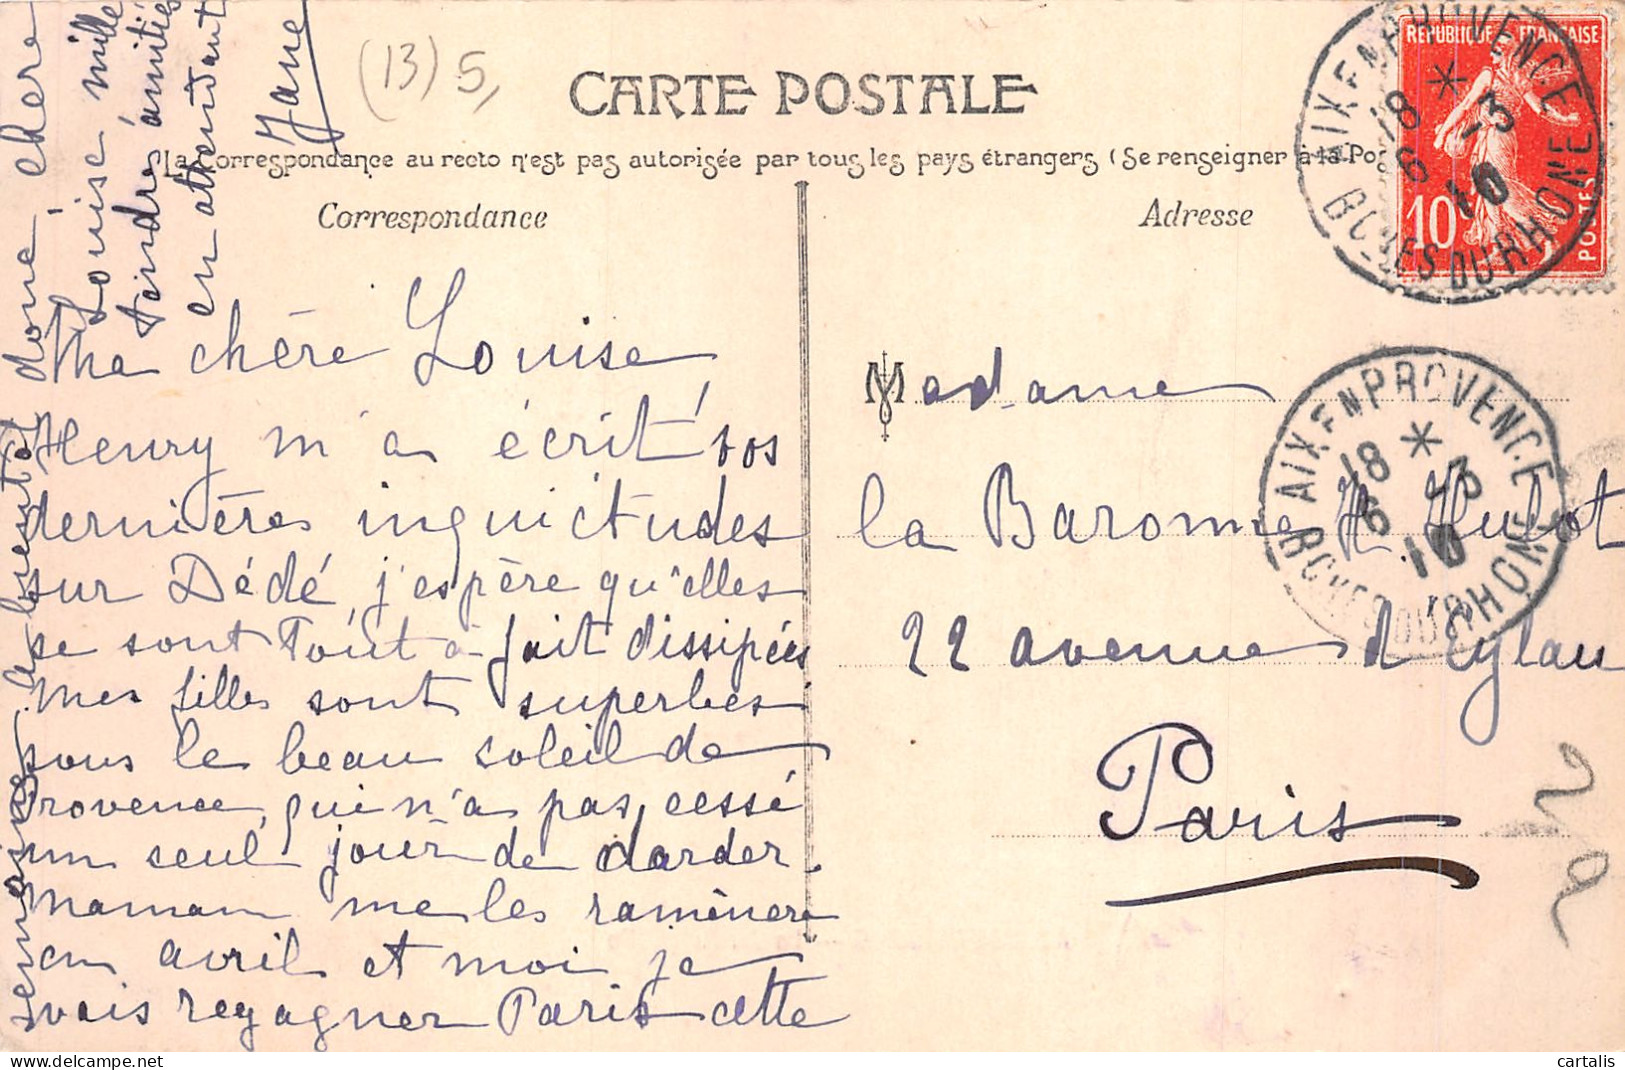 CARTE POSTALE
La correspondance au recto n'est pas autorisée par tous les pays étrangers (Se renseigner à la Po
Correspondance
Adresse
(13) 5,
Ma chère Louise
Henry m'a écrit vos
dernières inquiétudes
sur Dédé, j'espère qu'elles
se sont tout à fait dissipées
mes filles sont superbes
sous le beau soleil de
Provence, qui n'a pas cessé
un seul jour de darder.
Maman me les ramènera
en avril et moi je
vais regagner Paris cette
semaine. A bientôt donc, chère
Louise, mille
tendres amitiés
en attendant
Jane
Madame
la Baronne H. Hulot
22 avenue d'Eylau
Paris
REPUBLIQUE FRANÇAISE
10
POSTES
AIX EN PROVENCE
18 * -3
6 10
BCHES DU RHONE
AIX EN PROVENCE
18 * -3
6 10
BCHES DU RHONE
cartalis